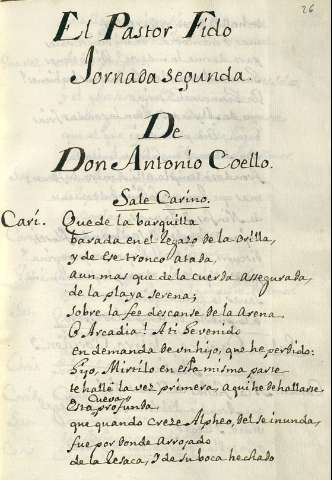 26
El Pastor Fido
Jornada segunda.
De
Don Antonio Coello.
Sale Carino.
Cari. Quede la barquilla
barada en el regazo de la Orilla,
y de ese tronco atada,
aun mas que de la cuerda assegurada,
de la playa serena;
sobre la fee descanse de la Arena.
O Arcadia! A ti he venido
en demanda de un hijo, que he perdido:
hijo, Mirtilo en esta misma parte
te hallè la vez primera, aqui he de hallarte.
Cueva
Esta profunda,
que quando creze Alpheo, del se inunda,
fue por donde Arrojado
de la Resaca, y de su boca hechado